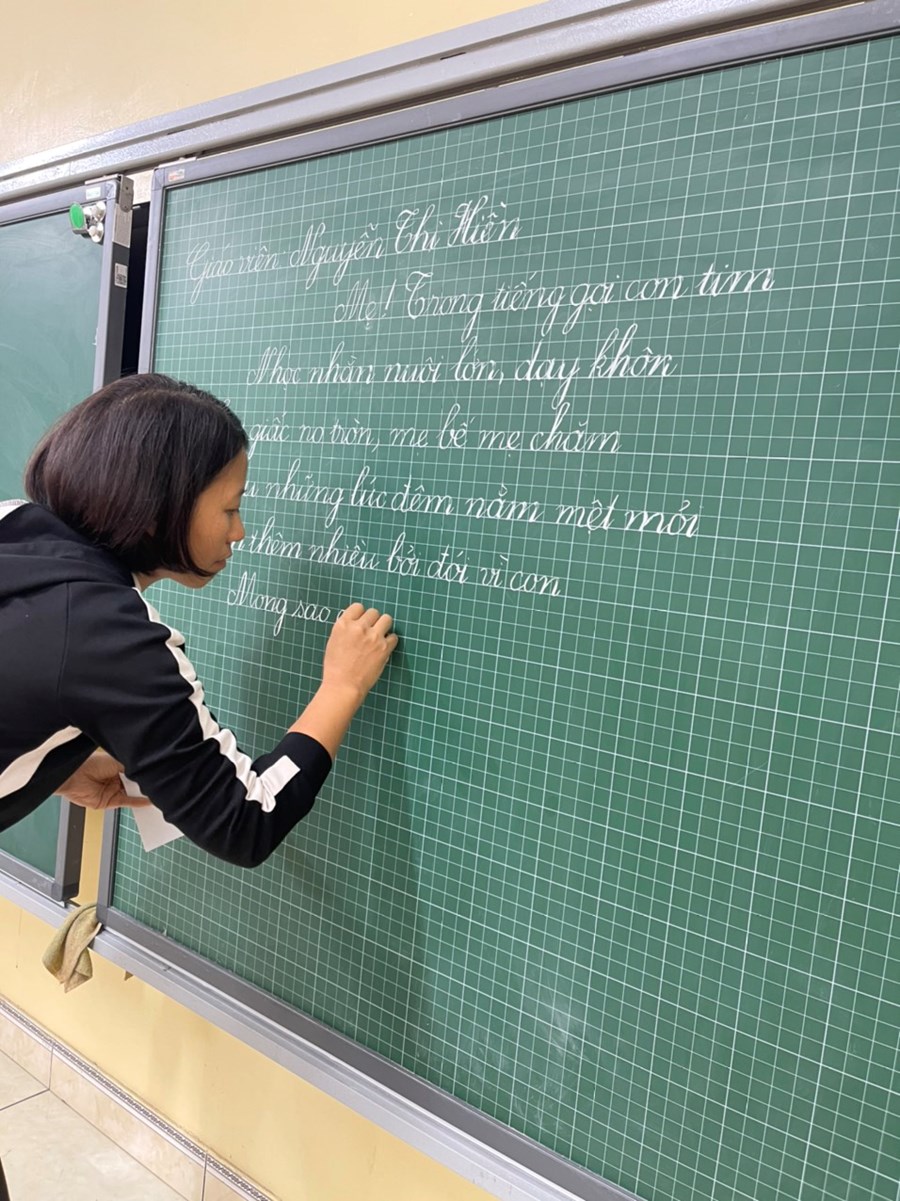 Giáo viên Nguyễn Thị Hiền
Mẹ! Trong tiếng gọi con tim
Nhọc nhằn nuôi lớn, dạy khôn
giấc no tròn, mẹ bế mẹ chăm
những lúc đêm nằm mệt mỏi
thêm nhiều bởi đói vì con
Mong sao